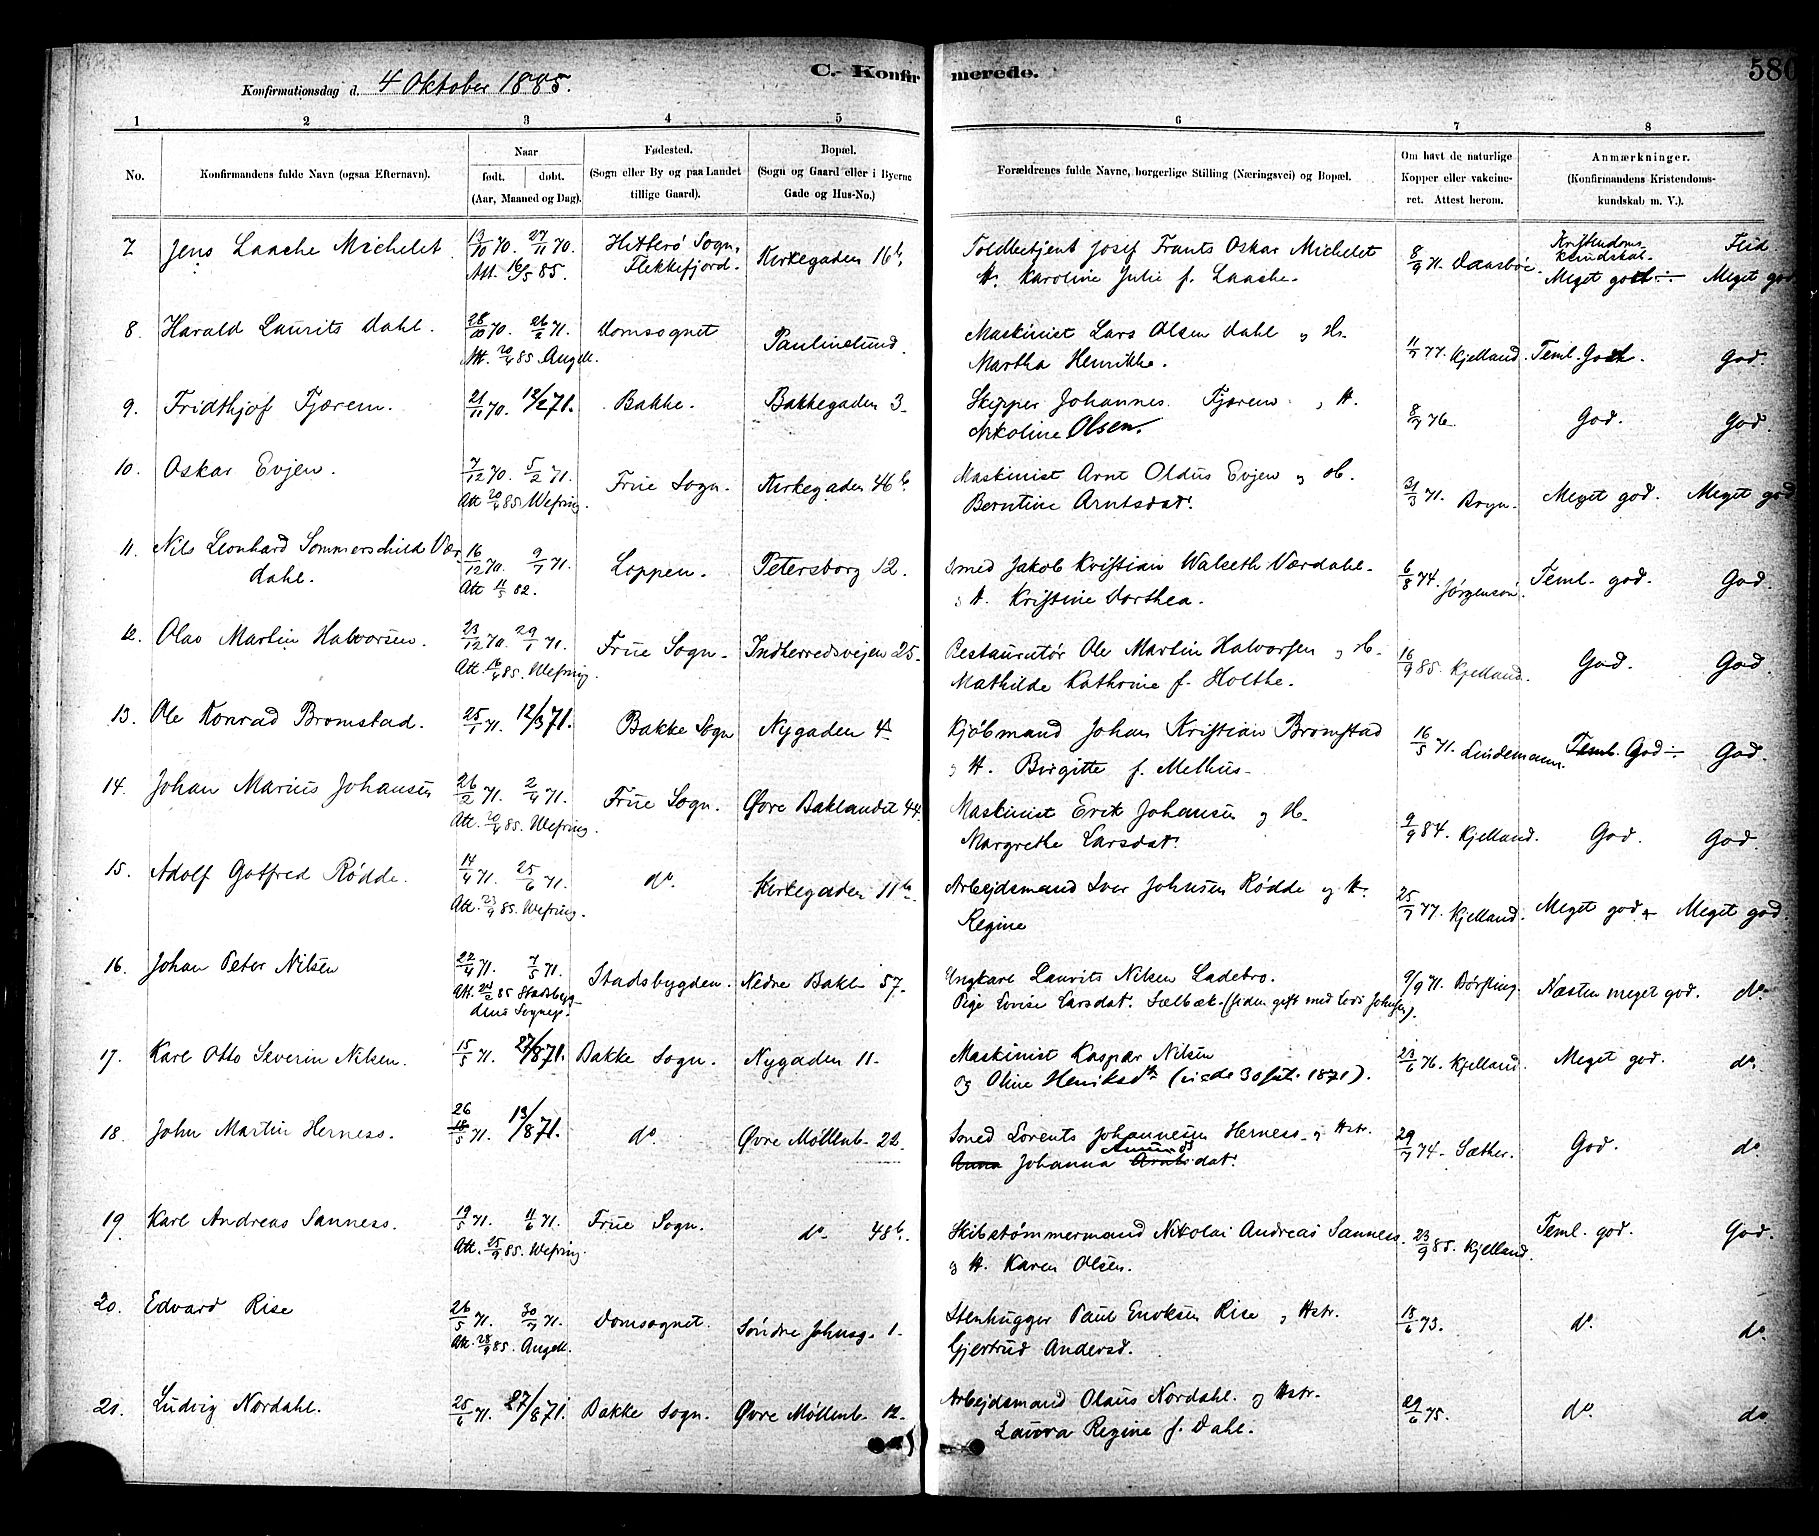 C. Konfirmerede.
580
Konfirmationsdag d. 4 Oktober 1885.
1 2 3 4 5 6 7 8
No.
Konfirmandens fulde Navn (ogsaa Efternavn).
Naar
født. døbt.
(Aar, Maaned og Dag).
Fødested.
(Sogn eller By og paa Landet
tillige Gaard).
Bopæl.
(Sogn og Gaard eller i Byerne
Gade og Hus-No.)
Forældrenes fulde Navne, borgerlige Stilling (Næringsvei) og Bopæl.
Om havt de naturlige
Kopper eller vakcine-
ret. Attest herom.
Anmærkninger.
(Konfirmandens Kristendoms-
kundskab m. V.).
7 Jens Laache Michelet 13/10 70. 27/11 70. Hitterö Sogn, Kirkegaden 16b. Toldbetjent Josef Frants Oskar Michelet 8/9 71. Kristendoms- Flid
Att. 16/5 85. Flekkefjord. H. Karoline Julie f. Laache. kundskab. Meget god Meget god
8. Harald Laurits Dahl. 28/10 70. 26/2 71. Domsognet Paulinelund. Maskinist Lars Olsen Dahl og H. 11/7 77. Kjelland. Teml. Godt. God.
Att. 20/4 85 Angell. Martha Henrikke.
9. Fridthjof Fjærem. 21/11 70. 12/2 71. Bakke. Bakkegaden 3. Skipper Johannes Fjærem, H. 8/7 76 God. God.
Nikoline Olsen.
10. Oskar Evjen. 7/12 70. 5/2 71. Frue Sogn. Kirkegaden 46b. Maskinist Arnt Oldus Evjen og H. 31/3 71. Meget god. Meget god
Att 20/4 85 Wefring. Berntine Arntsdat.
11. Nils Leonhard Sommerschild Vær- 16/12 70. 9/7 71. Loppen. Petersborg 12. Smed Jakob Kristian Walseth Værdahl 6/8 74. Jørgenson. Teml. god. God.
dahl. Att 11/5 82. H. Kristine Dorthea.
12. Olav Martin Halvorsen. 23/12 70. 29/1 71. Frue Sogn. Indherredsvejen 25. Restauratør Ole Martin Halvorsen og H. 16/9 85. Kjelland. God. God
Att. 16/4 85. Wefring. Mathilde Kathrine f. Holthe.
13. Ole Konrad Bromstad. 25/1 71. 12/3 71. Bakke Sogn Nygaden 4 Kjöbmand Johan Kristian Bromstad 16/5 71. Lindemann. Teml. God God.
og H. Birgitte f. Melhus.
14. Johan Marius Johansen 26/2 71. 2/4 71. Frue Sogn. Øvre Baklandet 44. Maskinist Erik Johansen og H. 9/9 84. Kjelland. God. God.
Att. 20/4 85. Wefring. Margrethe Larsdat.
15. Adolf Gotfred Rödde. 14/4 71. 25/6 71. do. Kirkegaden 11b. Arbejdsmand Iver Johnsen Rödde og H. 25/7 77. Kjelland. Meget god Meget god.
Att. 23/9 85. Wefring. Regine
16. Johan Peter Nilsen 22/4 71. 7/5 71. Stadsbygden. Nedre Bakl. 57. Ungkarl Laurits Nilsen Ladebro. 9/9 71. Börsting. Næsten meget god. do
Att. 24/2 85 Stadsbyg- Pige Lovise Larsdat. Sælbæk (siden gift med Lars Johnsen).
dens Sognepr.
17. Karl Otto Severin Nilsen. 15/5 71. 27/8 71. Bakke Sogn. Nygaden 11. Maskinist Kaspar Nilsen 23/6 76. Kjelland. Meget god. do.
og Oline Henriksdtr (viede 30 Juli 1871).
18. John Martin Herness. 26 18/5 71. 13/8 71. do. Øvre Möllenb. 22. Smed Lorents Johannesen Herness og Hstr. 29/7 74. Sæther. God. do.
Anna Johanna Arntsdat. Amunds
19. Karl Andreas Sanness. 19/5 71. 11/6 71. Frue Sogn. do 48b. Skibstømmermand Nikolai Andreas Sanness. 23/9 85. Kjelland. Teml. god. God.
Att. 25/9 85. Wefring. og H. Karen Olsen.
20. Edvard Rise 26/5 71. 30/7 71. Domsognet. Söndre Johnsg. 1. Stenhugger Paul Enoksen Rise og Hstr. 18/6 73. do. do.
Att. 28/9 85. Angell. Gjertrud Andersd.
21. Ludvig Nordahl. 25/6 71. 27/8 71. Bakke Sogn. Øvre Möllenb. 12. Arbejdsmand Olaus Nordahl. og Hstr. 29/6 75. do. do
Laura Regine f. Dahl.